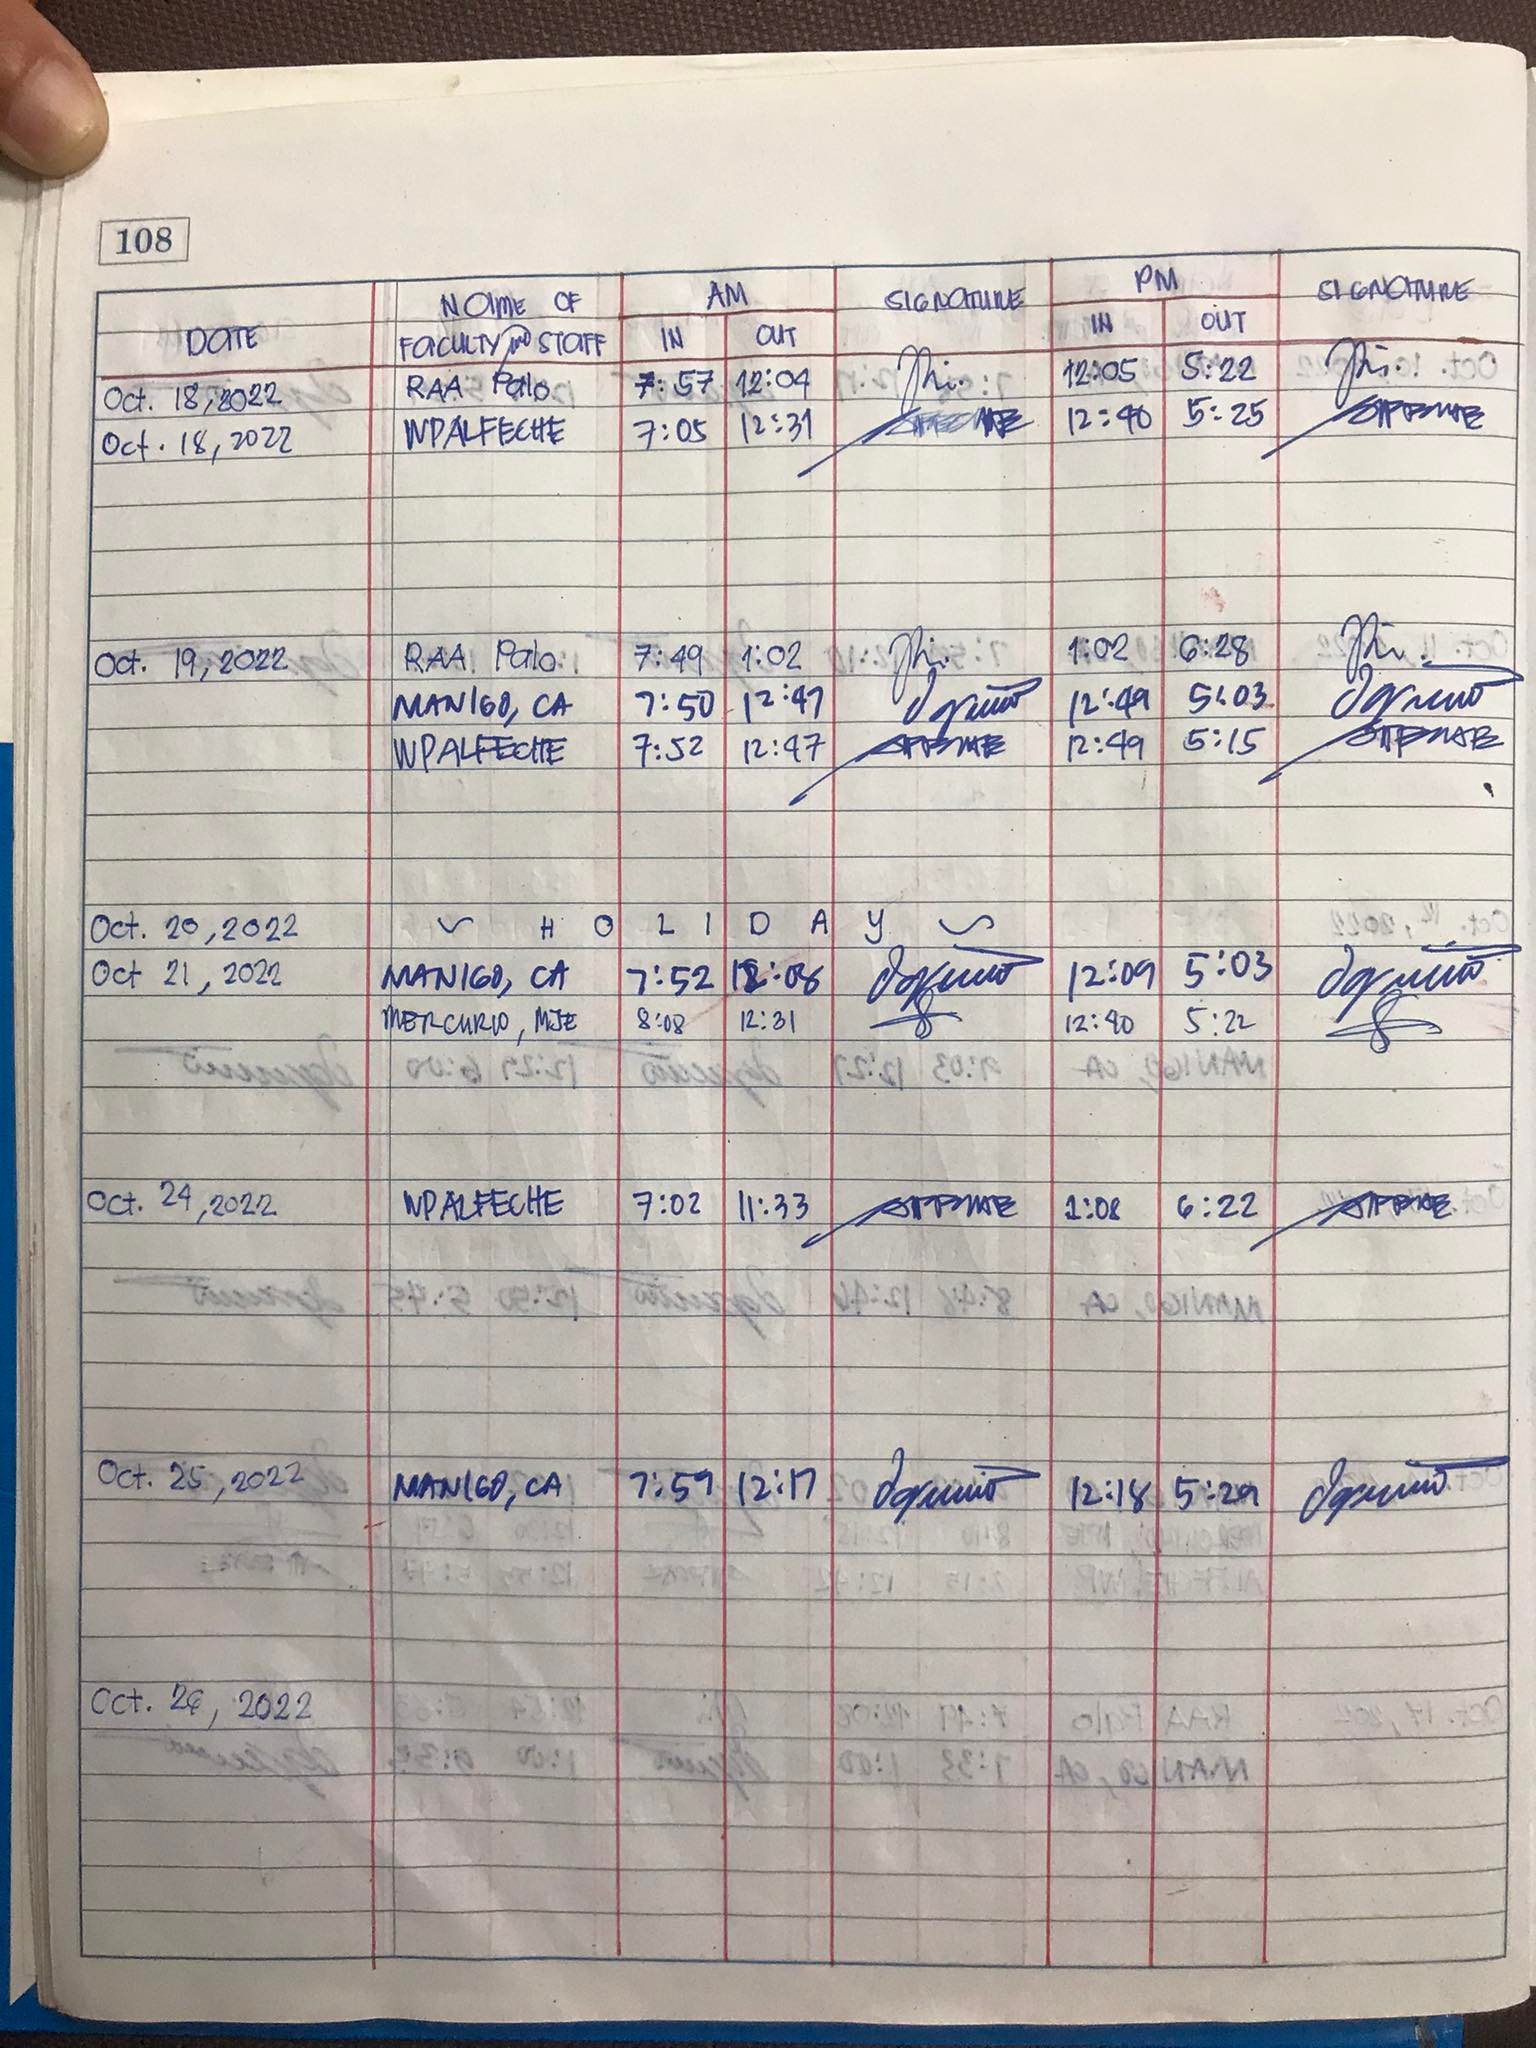 108
DATE NAME OF FACULTY and STAFF AM IN OUT SIGNATURE PM IN OUT SIGNATURE
Oct. 18, 2022 RAA Palo 7:57 12:04 12:05 5:22
Oct. 18, 2022 WPALFECHE 7:05 12:31 12:40 5:25
Oct. 19, 2022 RAA Palo 7:49 1:02 1:02 6:28
MANIGO, CA 7:50 12:47 12:49 5:03
WPALFECHE 7:52 12:47 12:49 5:15
Oct. 20, 2022 ~ H O L I D A Y ~
Oct 21, 2022 MANIGO, CA 7:52 12:08 12:09 5:03
MERCURIO, MJE 8:08 12:31 12:40 5:22
Oct. 24, 2022 WPALFECHE 7:02 11:33 1:08 6:22
Oct. 25, 2022 MANIGO, CA 7:59 12:17 12:18 5:29
Oct. 26, 2022